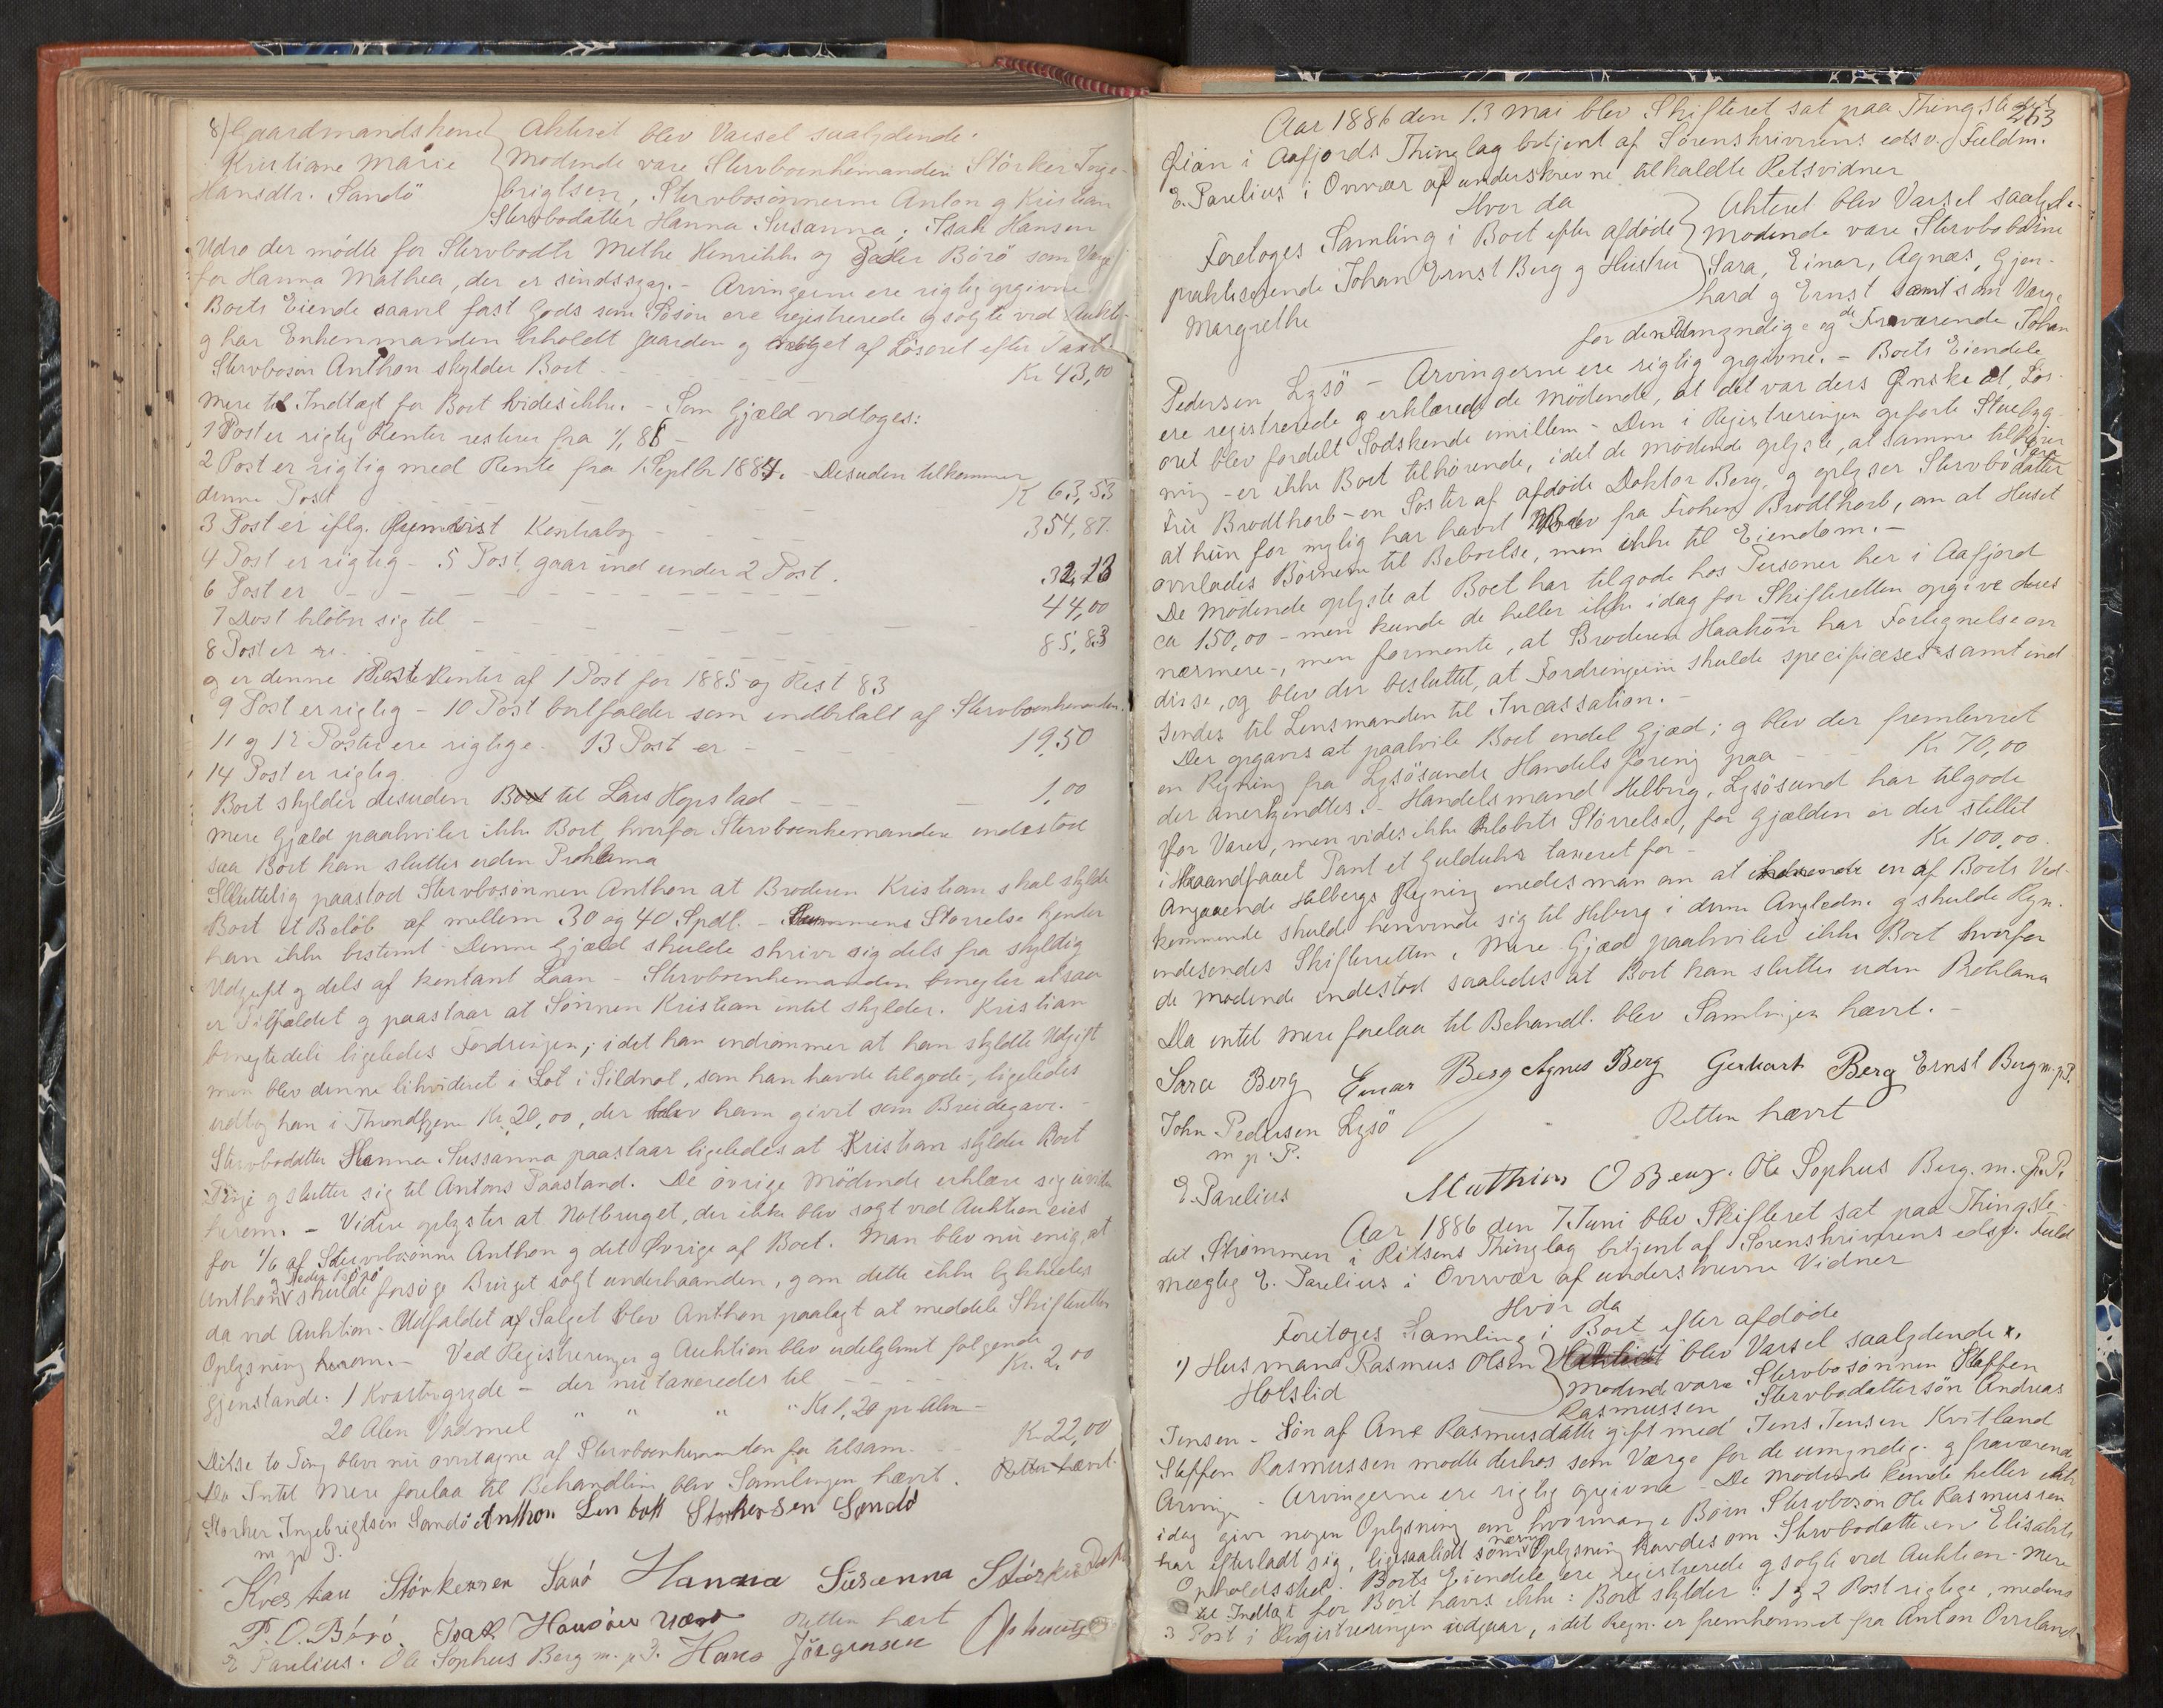 8) Gaardmandskone Akteret blev Varsel saalydende.
Kristiane Marie Mødende vare Stervboenkemanden Störker Inge-
Hansdtr. Sandö brigtsen, Stervbosønnerne Anton og Kristian
Stervbodatter Hanna Susanna; Isak Hansen
Udrø der mødte for Stervbodtr Methe Henrikke og Peder Börö som Værge
for Hanna Mathea, der er sindssyg. - Arvingerne ere rigtig opgivne.
Boets Eiende saavel fast Gods som Løsøre ere registrerede og solgte ved Auktion
og har Enkemanden beholdt Gaarden og noget af Løsøret efter Taxt.
Stervbosøn Anthon skylder Boet - - Kr 43,00
Mere til Indtægt for Boet vides ikke. - Som Gjæld vedtoges:
1 Post er rigtig Renter restere fra 1/1 86 -
2 Post er rigtig med Rente fra 1 Septbr 1884. - Desuden tilkommer
denne Post - - K 63,53
3 Post er iflg. Kontrabog - - 354,87.
4 Post er rigtig - 5 Post gaar ind under 2 Post.
6 Post er - - - 32,13
7 Post beløber sig til - - 44,00
8 Post er - - 85,83
og er denne Post Renter af 1 Post for 1885 og Rest 83
9 Post er rigtig - 10 Post bortfalder som indbetalt af Stervboenkemanden.
11 og 12 Poster ere rigtige. 13 Post er - - 19,50
14 Post er rigtig.
Boet skylder desuden til Lars Hopstad - - 1,00
Mere Gjæld paahviler ikke Boet, hvorfor Stervboenkemanden indestod
saa Boet kan sluttes uden Proklama
Sluttelig paastod Stervbosønnen Anthon at Broderen Kristian skal skylde
Boet et Beløb af mellem 30 og 40 Spdl. - Summens Størrelse kjender
han ikke bestemt. Denne Gjæld skulde skrive sig dels fra skyldig
Udgift og dels af kontant Laan - Stervboenkemanden benegter at saa
er Tilfældet og paastaar at Sønnen Kristian intet skylder. Kristian
benegtede ligeledes Fordringen, idet han indrømmer at han skyldte Udgift
men blev denne likvideret i Lot i Sildnot, som han havde tilgode, ligeledes
udtog han i Throndhjem Kr. 20,00, der blev ham givet som Brudegave. -
Stervbodatter Hanna Sussanna paastaar ligeledes at Kristian skylder Boet
Penge og slutter sig til Antons Paastand. De øvrige Mødende erklære sig uvidende
herom. - Videre oplystes at Notbruget, der ikke blev solgt ved Auktion eies
for 1/6 af Stervbosønnen Anthon og det Øvrige af Boet. Man blev nu enig, at
og Peder Börö
Anthon skulde forsøge Bruget solgt underhaanden, og om dette ikke lykkedes
da ved Auktion. Udfaldet af Salget blev Anthon paalagt at meddele Skifteretten
Oplysning herom. - Ved Registreringen og Auktion blev udelglemt følgende
Gjenstande. 1 Kvartvogryde - der nu taxeredes til - - Kr. 2,00
20 Alen Vadmel " " " " Kr 1,20 pr Alen -
Disse to Ting blev nu overtagne af Stervboenkemanden for tilsam. - - Kr 22,00
Da Intet Mere forelaa til Behandling blev Samlingen hævet. Retten hævet.
Störker Ingebrigtsen Sandö Anthon Storkersen Sandö
m p P.
Kristian Störkersen Hanna Susanna Störkersdatter
P. O. Börö. Isak Hansen Udrø Retten hævet
E Parelius. Ole Sophus Berg m. p. P. Hans Jörgensen
263
Aar 1886 den 13 Mai blev Skifteret sat paa Thingstedet
Qian i Aafjords Thinglag betjent af Sorenskriverens edsv. Fuldm.
E. Parelius i Overvær af underskrevne tilkaldte Retsvidner
Hvor da
Foretoges Samling i Boet efter afdøde Akteret blev Varsel saalyde-
praktiserende Johan Ernst Berg og Hustru Mødende vare Stervbobørnene
Margrethe Sara, Einar, Agnæs, Gjer-
hard og Ernst samt som Værge
for den Umyndige og de Fraværende Johan
Pedersen Lysö - Arvingerne ere rigtig opgivne. - Boets Eiendele
ere registrerede og erklærede de Mødende, at det var deres Ønske at Løs-
øret blev fordelt Sødskende imillem - Den i Registreringen opførte Stuebyg-
ning - er ikke Boet tilhørende, idet de Mødende oplyste, at samme tilhører
Fru Brodtkorb - en Søster af afdøde Doktor Berg, og oplyser Stervbodatter
at hun for nylig har havt Brev fra Frøken Brodtkorb, om at Huset
overlades Børnene til Beboelse, men ikke til Eiendom. -
De Mødende oplyste at Boet har tilgode hos Personer her i Aafjord
ca 150,00 - men kunde de heller ikke idag for Skifteretten opgive dens
nærmere, men formente, at Broderen Haakon har Fortegnelse over
disse, og blev der besluttet, at Fordringerne skulde specificeses samt ind-
sendes til Lensmanden til Incassation. -
Der opgaves at paahvile Boet endel Gjæld; og blev der fremleveret
en Regning fra Lysösunds Handelsforening paa - - Kr 70,00
der anerkjendtes. - Handelsmand Hilberg, Lysösund har tilgode
for Varer, men vides ikke Beløbets Størrelse, for Gjælden er der stillet
i Haandfaaet Pant et Guldur taxeret for - - Kr 100,00.
Angaaende Hilbergs Regning enedes man om at en af Boets Ved-
kommende skulde henvende sig til Hilberg i denne Angledn. og skulde Regn.
indesendes Skifteretten. Mere Gjæld paahviler ikke Boet hvorfor
de Mødende indestod saaledes at Boet kan sluttes uden Proklama
Da intet mere forelaa til Behandl. blev Samlingen hævet. -
Sara Berg Einar Berg Agnes Berg Gerhart Berg Ernst Berg m. p. P.
John Pedersen Lysö Retten hævet
m p. P.
E. Parelius Mathias O Berg. Ole Sophus Berg. m. p. P.
Aar 1886 den 7. Juni blev Skifteret sat paa Thingste-
det Strømmen i Ritsens Thinglag betjent af Sorenskriverens edsv. Fuld-
mægtig E. Parelius i Overvær af underskrevne Vidner
Hvor da
Foretoges Samling i Boet efter afdøde
1) Husmand Rasmus Olsen Akteret blev Varsel saalydende.
Holslid Mødende vare Stervbosønnen Staffen
Rasmussen Stervbodattersøn Andreas
Jensen - Søn af Ane Rasmusdatter gift med Jens Jensen Kvitland
Staffen Rasmussen mødte derhos som Værge for de umyndige og fraværende
Arvinge - Arvingerne ere rigtig opgivne - De Mødende kunde heller ikke
idag give nogen Oplysning om hvormange Børn Stervbosøn Ole Rasmussen
har efterladt sig, ligesaalidt som nogen Oplysning havdes om Stervbodatteren Elisabets
Opholdssted. Boets Eiendele ere registrerede og solgte ved Auktion - Mere
til Indtægt for Boet haves ikke: Boet skylder: 1 og 2 Post rigtige, medens
3 Post i Registreringen udgaar, idet Regn. er fremkommet fra Anton Overland